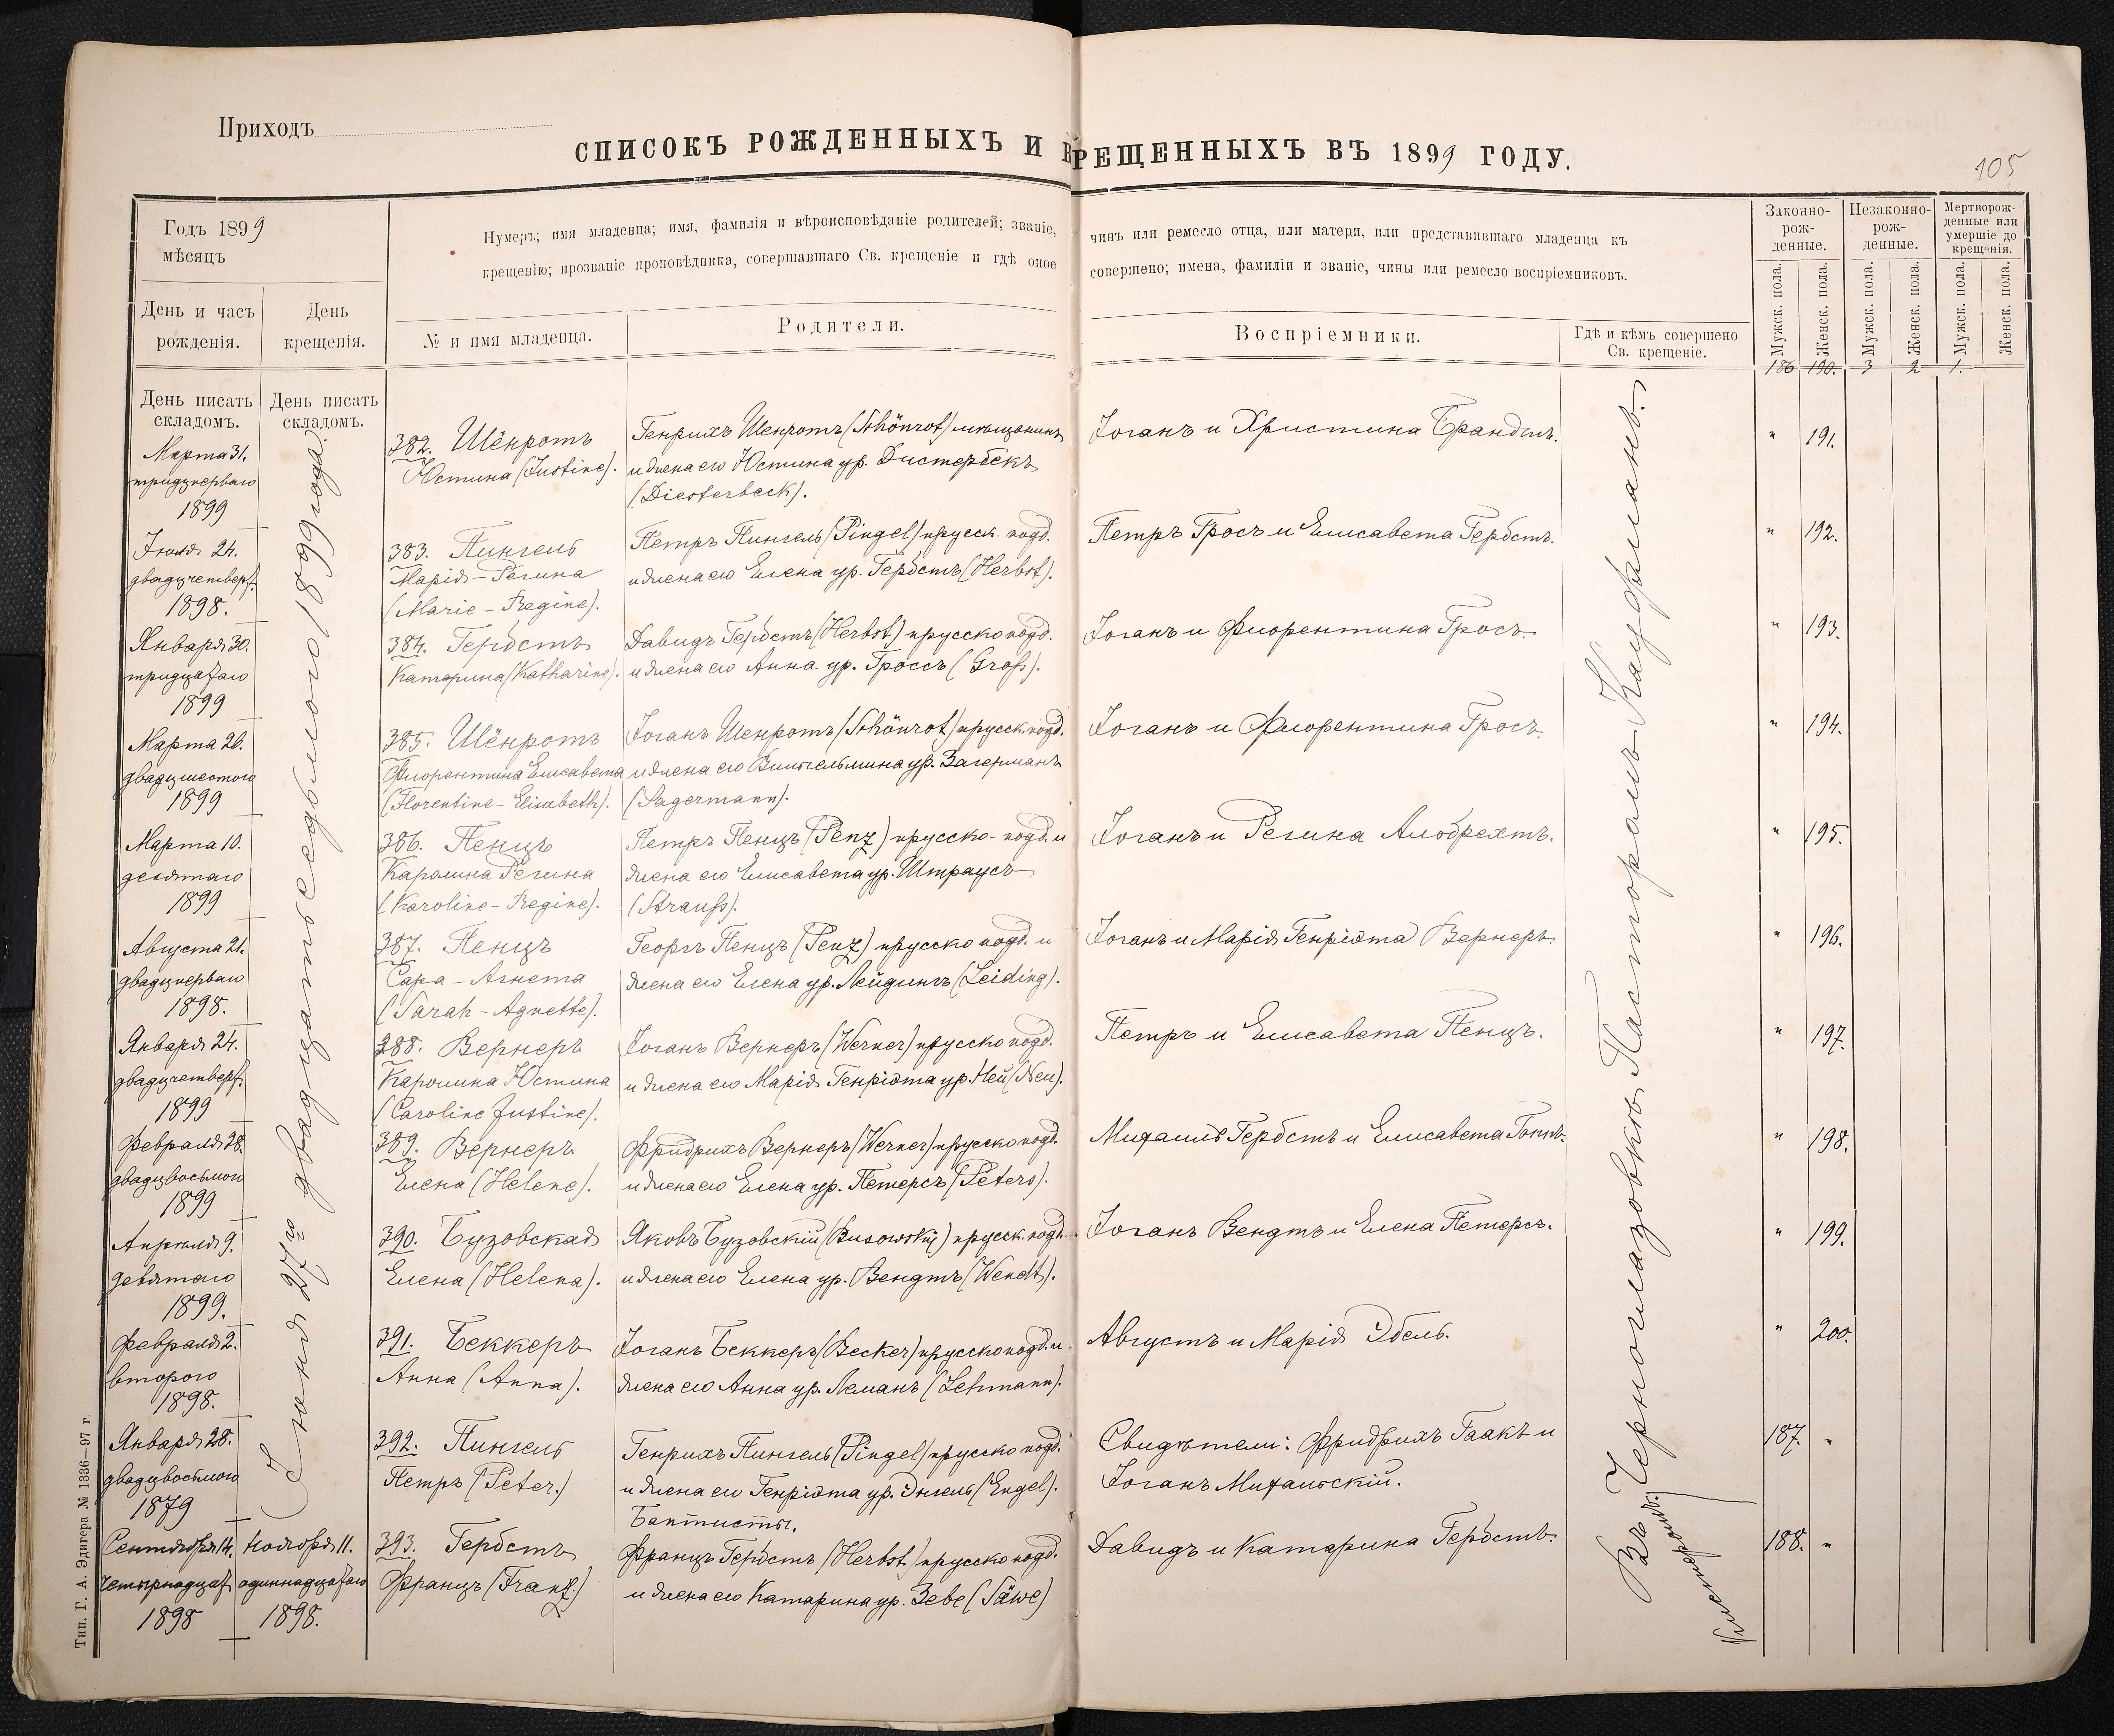 Приходъ
СПИСОКЪ РОЖДЕННЫХЪ И КРЕЩЕННЫХЪ ВЪ 1899 ГОДУ.
105
Годъ 1899
мѣсяцъ
День и часъ
рожденія.
День
крещенія.
Нумеръ; имя младенца; имя, фамилія и вѣроисповѣданіе родителей; званіе,
крещенію; прозваніе проповѣдника, совершавшаго Св. крещеніе и гдѣ оное
№ и имя младенца.
Родители.
чинъ или ремесло отца, или матери, или представившаго младенца къ
совершено; имена, фамиліи и званіе, чины или ремесло воспріемниковъ.
Воспріемники.
Гдѣ и кѣмъ совершено
Св. крещеніе.
Законно-
рож-
денные.
Незаконно-
рож-
денные.
Мертворож-
денные или
умершіе до
крещенія.
Мужск. пола.
Женск. пола.
Мужск. пола.
Женск. пола.
Мужск. пола.
Женск. пола.
186 190. 3 2 1.
День писать
складомъ.
День писать
складомъ.
Марта 31.
тридцперваго
1899
382. Шёнротъ
Юстина (Justine).
Генрихъ Шенротъ (Schönrot) мѣщанинъ
и жена его Юстина ур. Дистербекъ
(Diesterbeck).
Іоганъ и Христина Брандтъ.
" 191.
Іюля 24.
двадцчетверт.
1898.
383. Пингель
Марія-Регина
(Marie-Regine).
Петръ Пингель (Pingel) прусск. подд.
и жена его Елена ур. Гербстъ (Herbst).
Петръ Гросъ и Елисавета Гербстъ.
" 192.
Января 30.
тридцатаго
1899
384. Гербстъ
Катарина (Katharine).
Давидъ Гербстъ (Herbst) прусско подд.
и жена его Анна ур. Гроссъ (Groß).
Іоганъ и Флорентина Гросъ.
" 193.
Марта 26.
двадцшестого
1899
385. Шёнротъ
Флорентина Елисавета
(Florentine-Elisabeth).
Іоганъ Шенротъ (Schönrot) прусск. подд.
и жена его Вильгельмина ур. Загерманъ
(Sagermann).
Іоганъ и Флорентина Гросъ.
" 194.
Марта 10.
десятаго
1899
386. Пенцъ
Каролина Регина
(Karoline-Regine).
Петръ Пенцъ (Penz) прусско-подд. и
жена его Елисавета ур. Штраусъ
(Strauß).
Іоганъ и Регина Альбрехтъ.
" 195.
Августа 21.
двадцперваго
1898.
387. Пенцъ
Сара-Агнета
(Sarah-Agnette).
Георгъ Пенцъ (Penz) прусско подд. и
жена его Елена ур. Лейдингъ (Leiding).
Іоганъ и Марія Генріэта Вернеръ.
" 196.
Января 24.
двадцчетверт.
1899
388. Вернеръ
Каролина Юстина
(Caroline Justine).
Іоганъ Вернеръ (Werner) прусско подд.
и жена его Марія Генріэта ур. Ней (Neu).
Петръ и Елисавета Пенцъ.
" 197.
Февраля 28.
двадцвосьмого
1899
389. Вернеръ
Елена (Helene).
Фридрихъ Вернеръ (Werner) прусско подд.
и жена его Елена ур. Петерсъ (Peters).
Михаилъ Гербстъ и Елисавета
" 198.
Апрѣля 9.
девятаго
1899.
390. Бузовская
Елена (Helena).
Яковъ Бузовскій (Busowsky) прусск. подд.
и жена его Елена ур. Вендтъ (Wendt).
Іоганъ Вендтъ и Елена Петерсъ.
" 199.
Февраля 2.
второго
1898.
391. Беккеръ
Анна (Anna).
Іоганъ Беккеръ (Becker) прусско подд. и
жена его Анна ур. Леманъ (Lehmann).
Августъ и Марія Эбель.
" 200.
Января 28.
двадцвосьмого
1879
392. Пингель
Петръ (Peter.)
Генрихъ Пингель (Pingel) прусско подд.
и жена его Генріэта ур. Энгель (Engel).
Баптисты.
Свидѣтели: Фридрихъ Гаакъ и
Іоганъ Михальскій.
187. "
Сентября 14.
четырнадцат
1898
Ноября 11.
одиннадцатаго
1898.
393. Гербстъ
Францъ (Franz.)
Францъ Гербстъ (Herbst) прусско подд.
и жена его Катарина ур. Зеве (Säwe)
Давидъ и Катарина Гербстъ.
188. "
Іюня 27го двадцатьседьмого 1899 года.
Въ Черноглазовкѣ Пасторомъ Кауфманъ.
Тип. Г. А. Эдигера № 1336—97 г.